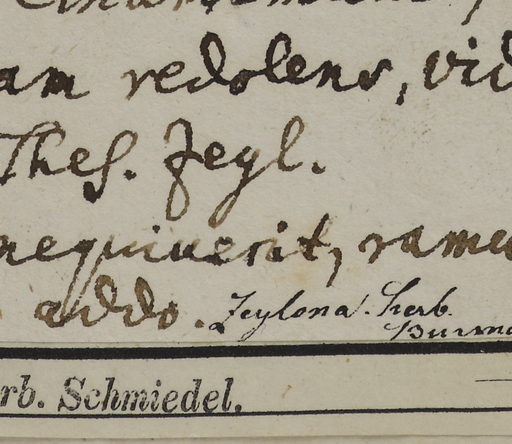 am redolens, vid
Thes. Zeyl.
nequiverit, ramu
addo. Zeylona. herb.
Burma
rb. Schmiedel.